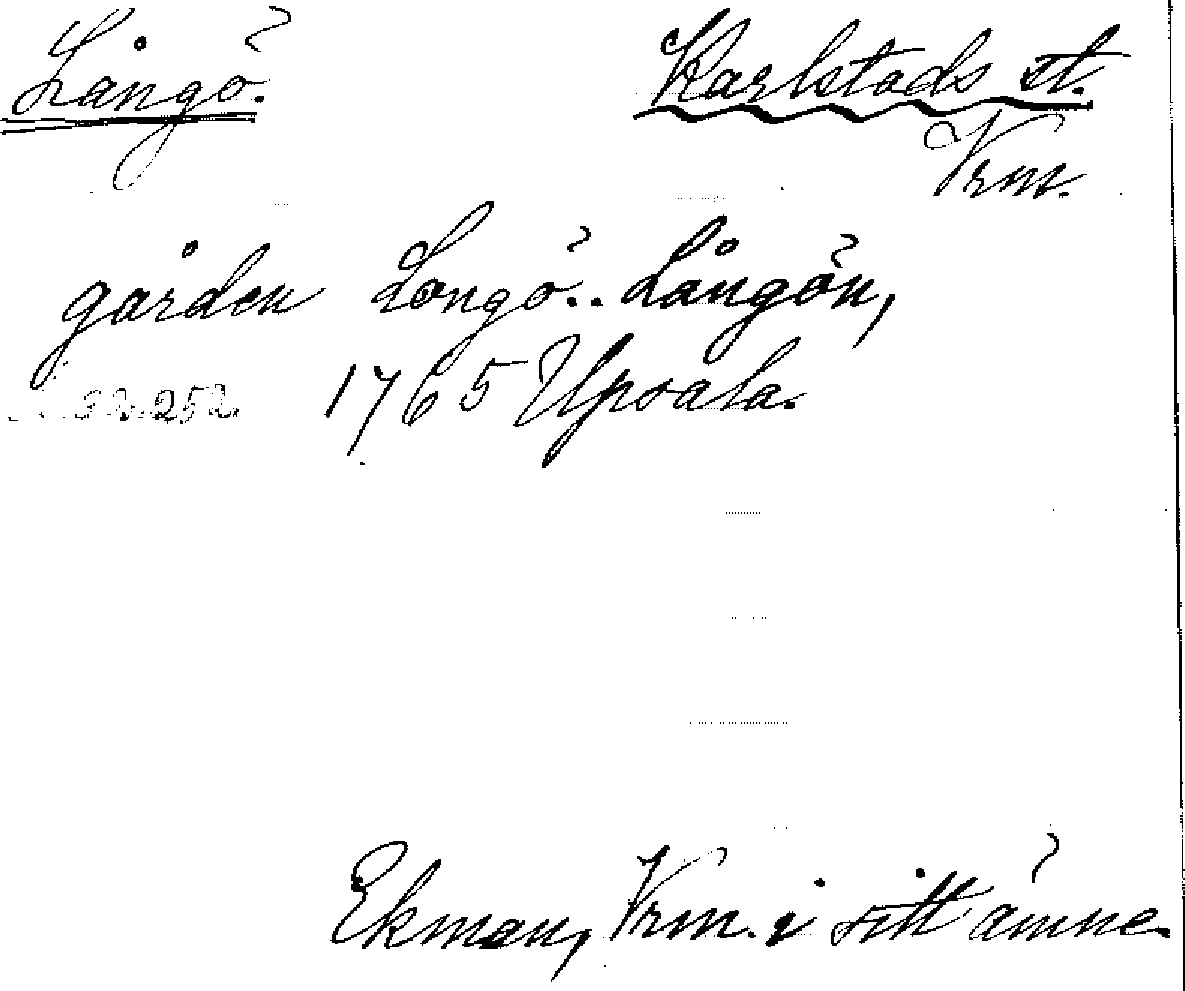 Långö. Karlstads st.
Vrm.
gården Långö.. Långön,
1765 Upsala.
Ekman, Vrm. i sitt ämne